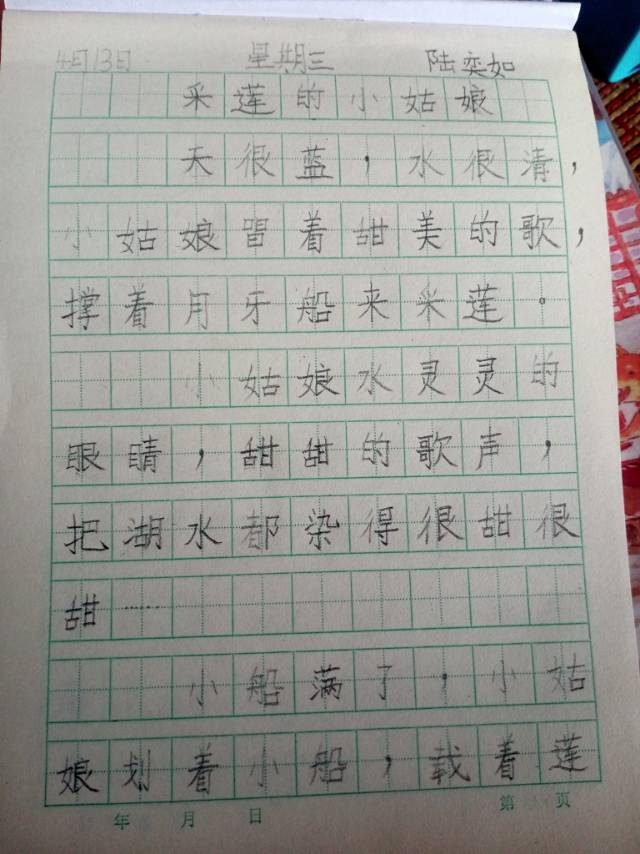 4月13日 星期三 陆奕如
采莲的小姑娘
天很蓝，水很清，
小姑娘留着甜美的歌，
撑着月牙船来采莲。
小姑娘水灵灵的
眼睛，甜甜的歌声，
把湖水都染得很甜很
甜……
小船满了，小姑
娘划着小船，载着莲
年 月 日 第 页